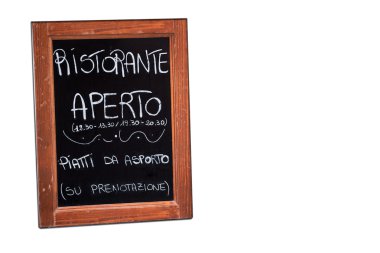 RISTORANTE
APERTO
(12.30-13.30/19.30-20.30)
PIATTI DA ASPORTO
(SU PRENOTAZIONE)